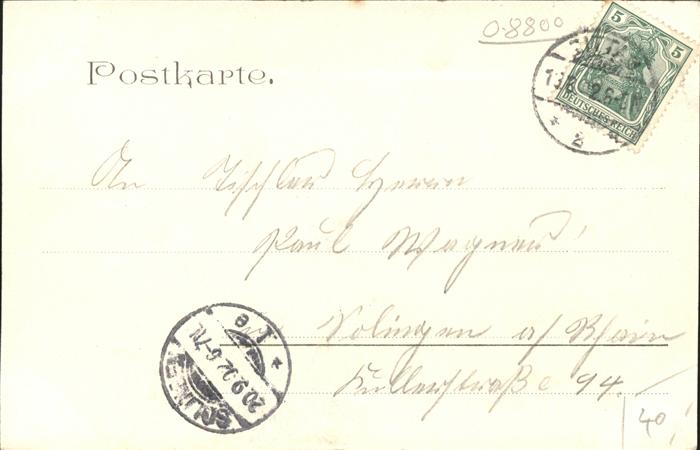 0-8800
5 5
DEUTSCHES REICH
ZITTAU
2
Postkarte.
An Tischler Herrn
Paul Wagner
Solingen a/ Rhein
Kullerstraße 94.
SOLINGEN
20 9 02 6-7N.
1 e
40,